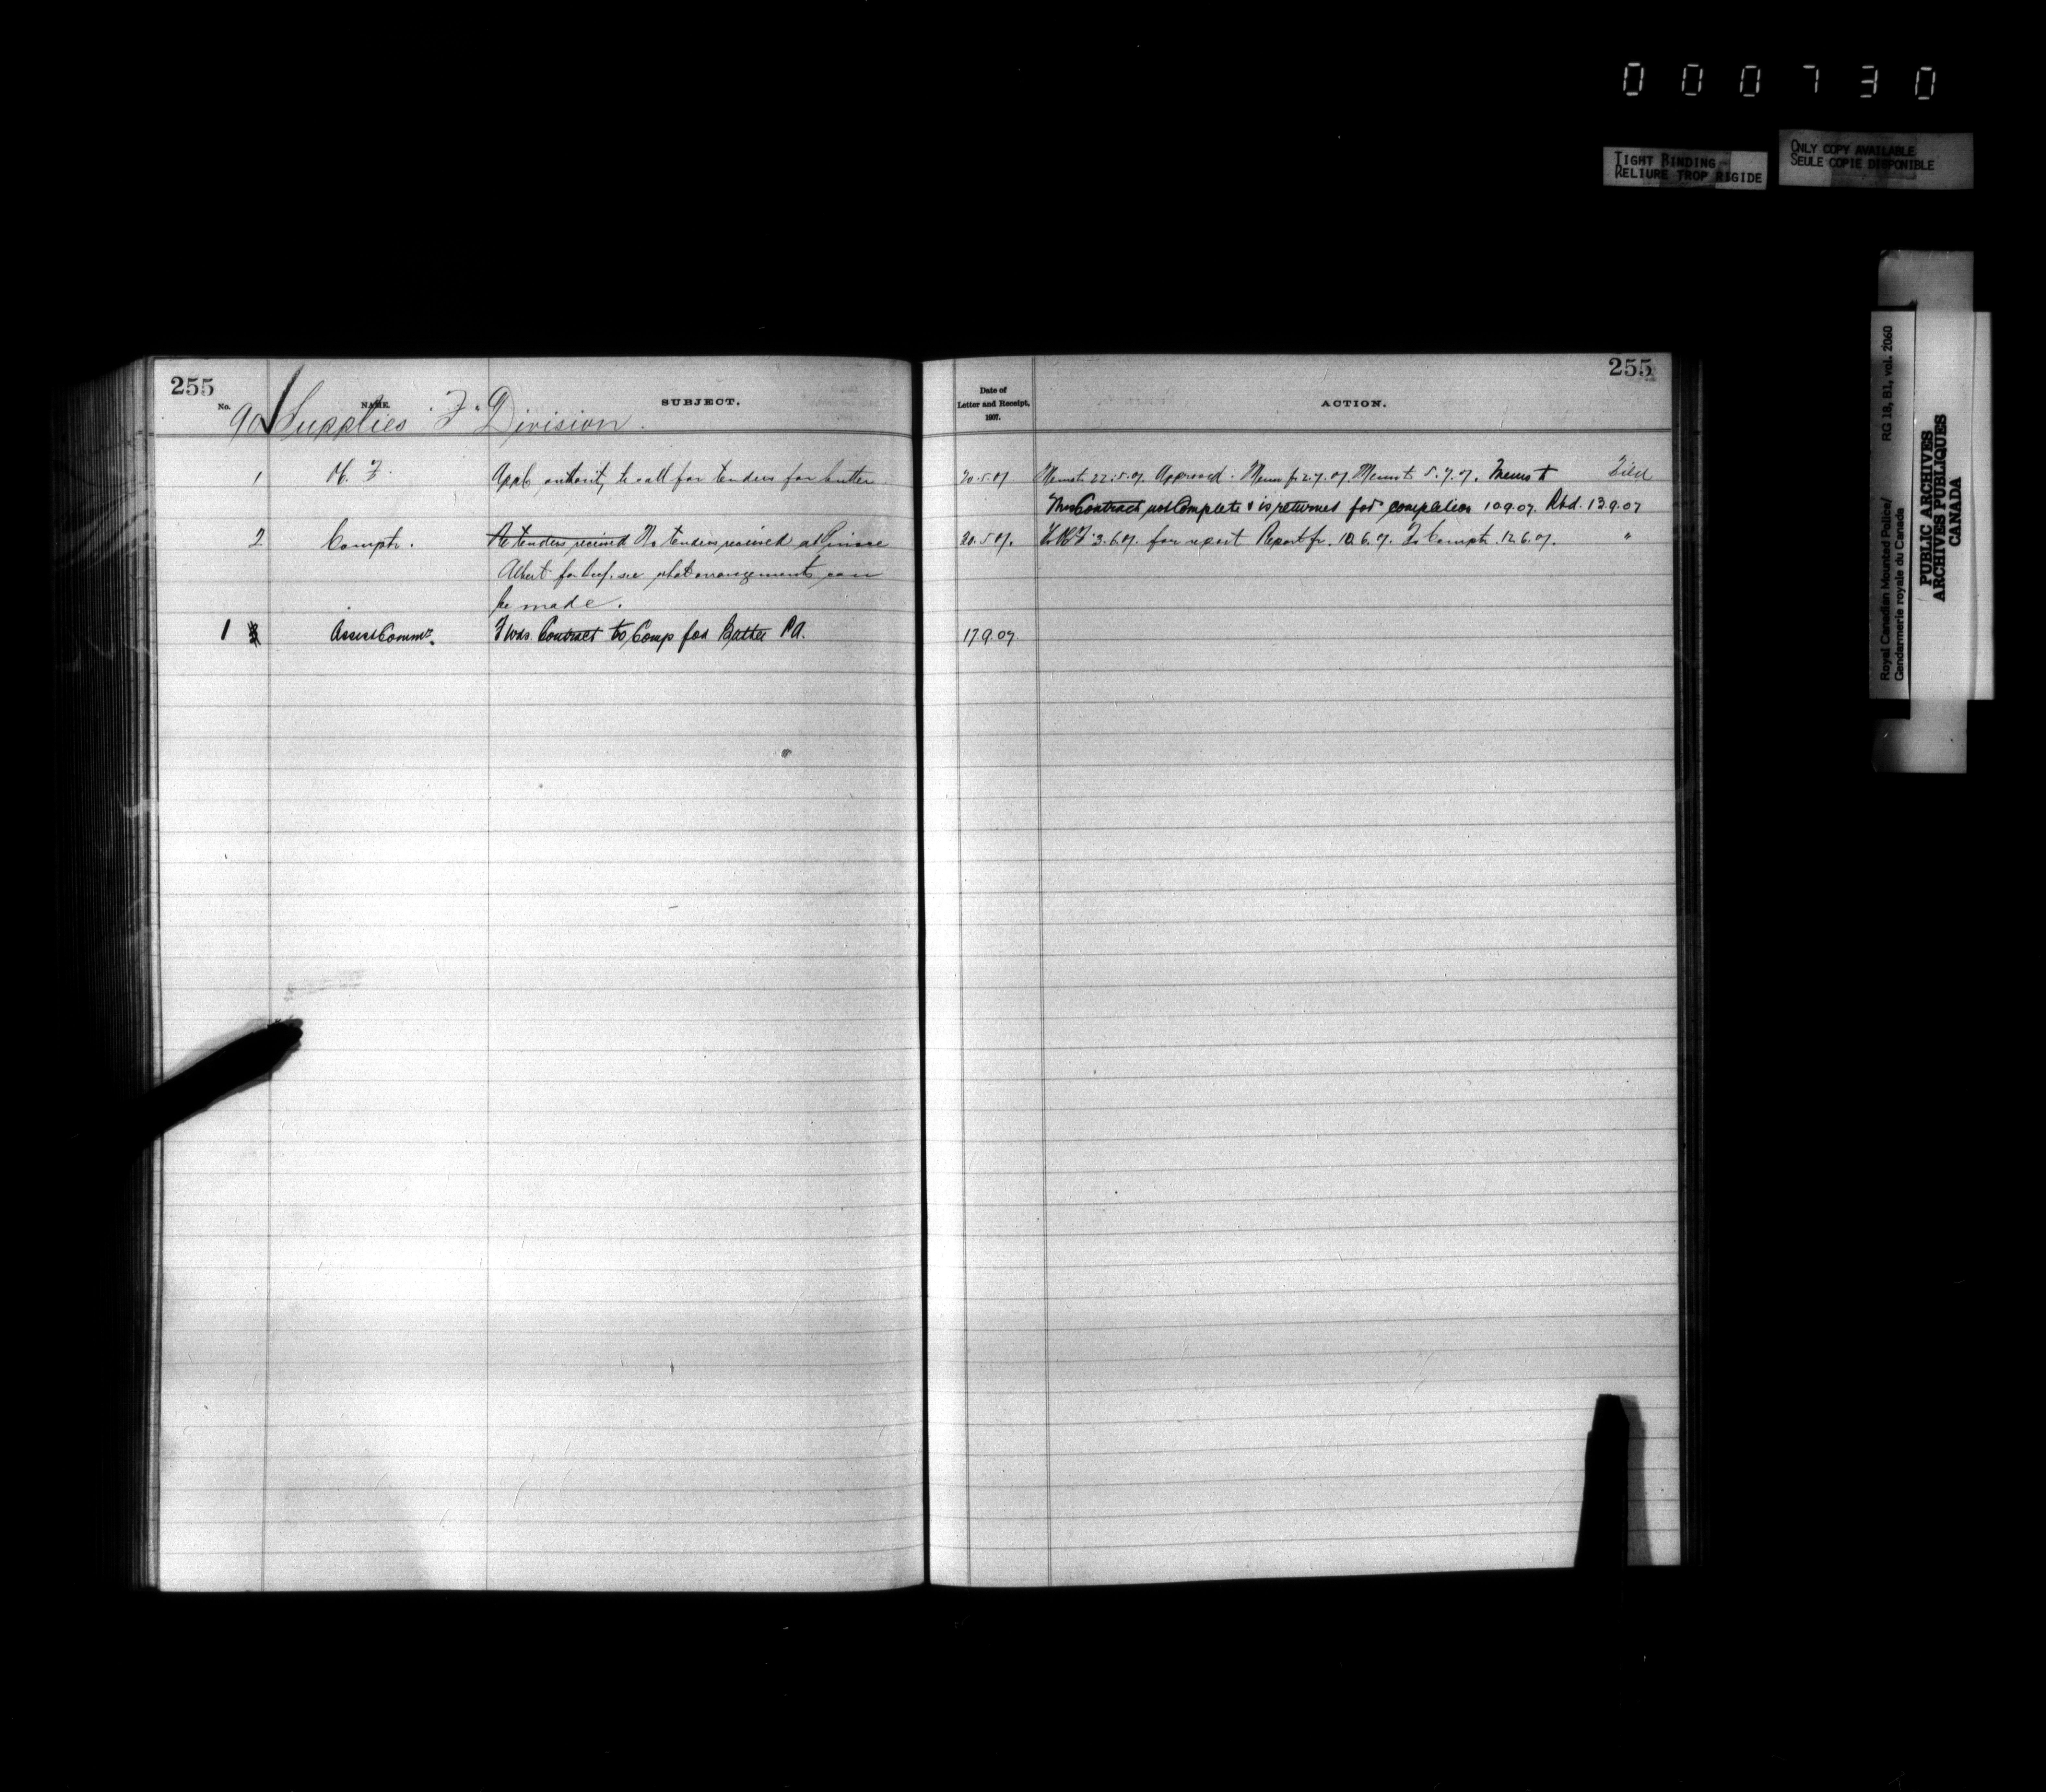 000730
TIGHT BINDING
RELIURE TROP RIGIDE
ONLY COPY AVAILABLE
SEULE COPIE DISPONIBLE
Royal Canadian Mounted Police/
Gendarmerie royale du Canada
RG 18, B1, vol. 2060
PUBLIC ARCHIVES
ARCHIVES PUBLIQUES
CANADA
255
No.
NAME.
SUBJECT.
90 Supplies "F" Division.
1 F. authority to call for tenders for butter
2 Comptr. Re tenders received No tenders received at Prince
Albert for beef. see what arrangements can
be made.
1 Asst Commr. Fwds. Contract to Comp for Butter P.A.
255
Date of
Letter and Receipt,
1907.
ACTION.
20.5.07 Memo to 22.5.07. Approved. Memo fr 2.7.07. Memo to 5.7.07. Memo to Filed
Contract not Complete & is returned for completion 10.9.07. Rtd. 13.9.07
20.5.07. 3.6.07. for report Report fr. 10.6.07. To Comptr. 12.6.07. "
17.9.07.